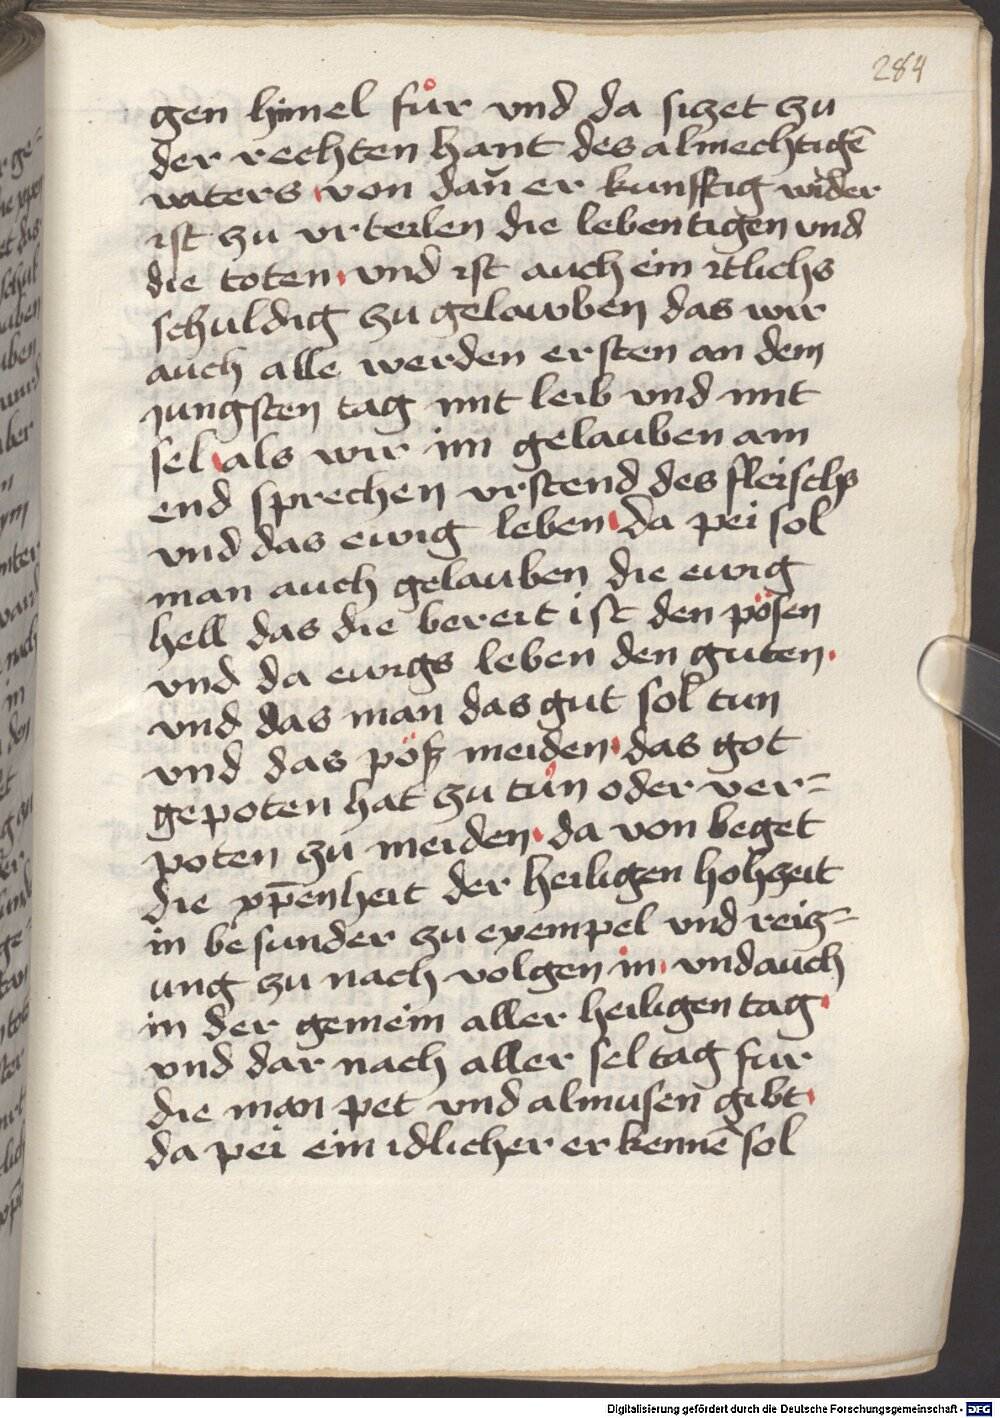 284
gen himel fůr vnd da sizet zu
der rechten hant des almechtigē
vaters von dan̄ er kunfftig wider
ist zu vrteilen die lebentigen vnd
die toten vnd ist auch ein itlichs
schuldig zu gelawben das wir
auch alle werden ersten an dem
jungsten tag mit leib vnd mit
sel als wir im gelauben am
end sprechen vrstend des fleischs
vnd das ewig leben da pei sol
man auch gelauben die ewig
hell das die bereit ist den pösen
vnd da ewigs leben den guten.
vnd das man das gut sol tun
vnd das pöß meiden das got
gepoten hat zu tůn oder ver=
poten zu meiden da von beget
die xp̄enheit der heiligen hohzeit
in besunder zu exempel vnd reiz=
ung zu nach volgen in vnd auch
in der gemein aller heiligen tag
vnd dar nach aller sel tag fur
die man pet vnd almusen gibt
da pei ein idlicher erkennē sol
Digitalisierung gefördert durch die Deutsche Forschungsgemeinschaft - DFG